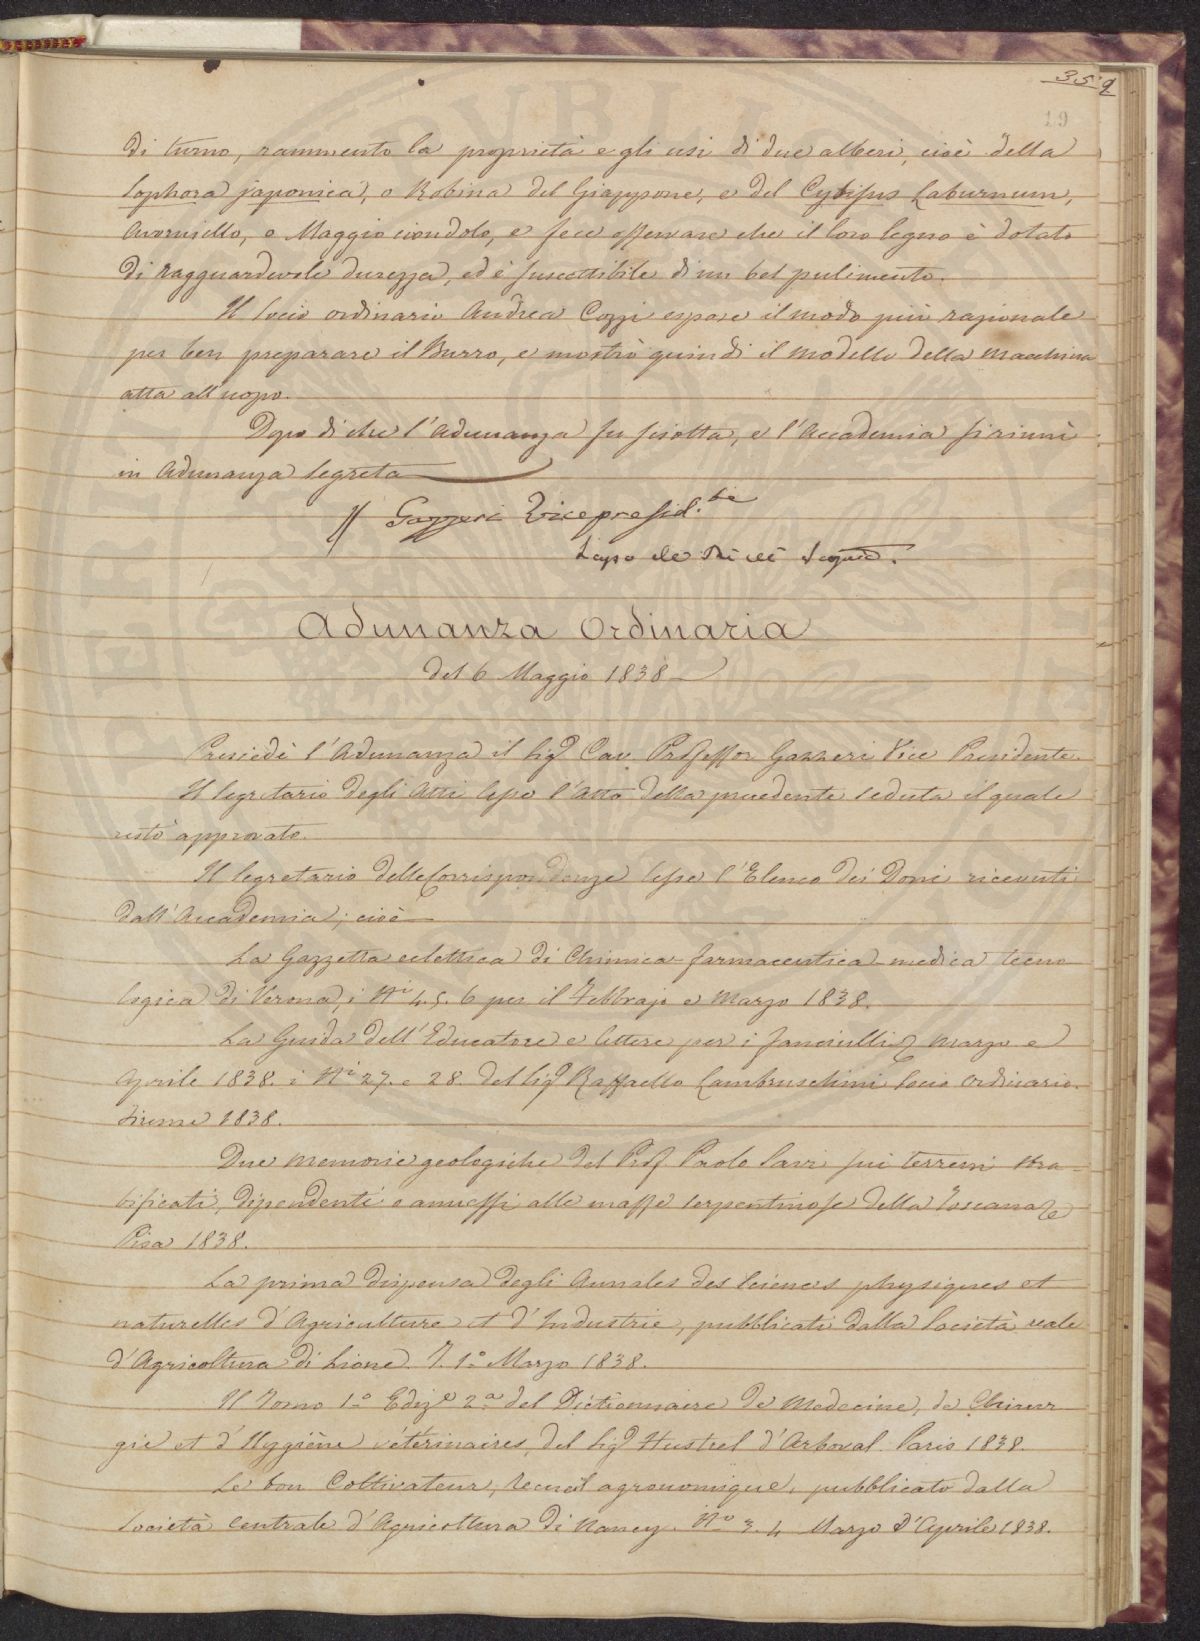 359
19
di turno, rammento la proprietà e gli usi di due alberi, cioè della
Sophora japonica, o Robina del Giappone, e del Cytisus Laburnum,
Avorniello, o Maggio ciondolo, e fece osservare che il loro legno è dotato
di ragguardevole durezza, ed è suscettibile di un bel pulimento.
Il Socio ordinario Andrea Cozzi espose il modo più razionale
per ben preparare il Burro, e mostrò quindi il modello della Macchina
atta all'uopo.
Dopo di che l'Adunanza fu sciolta, e l'Accademia si riunì
in Adunanza Segreta
Gazzeri Vicepresid.te
Lapo de Ricci Segrio.
Adunanza Ordinaria
del 6 Maggio 1838
Presiedè l'Adunanza il Sigr Cav. Professor Gazzeri Vice Presidente.
Il Segretario degli Atti lesse l'Atto della precedente seduta il quale
restò approvato.
Il Segretario delle Corrispondenze lesse l'Elenco dei Doni ricevuti
dall'Accademia; cioè
La Gazzetta eclettica di Chimica-farmaceutica-medica tecno
logica di Verona, i Ni 4. 5. 6 per il Febbrajo e Marzo 1838.
La Guida dell'Educatore e letture per i fanciulli, Marzo e
Aprile 1838. i Ni 27. e 28. del Sigr Raffaello Lambruschini Socio ordinario.
Firenze 1838.
Due Memorie geologiche del Prof. Paolo Savi sui terreni stra-
tificati, dipendenti o annessi alle masse serpentinose della Toscana
Pisa 1838.
La prima dispensa degli Annales des Sciences physiques et
naturelles d'Agriculture et d'Industrie, pubblicati dalla Società reale
d'Agricoltura di Lione. T. 1.o Marzo 1838.
Il Tomo 1.o Edize 2.a del Dictionnaire de Medecine, de Chirur
gie et d'Hygiène vétérinaires, del Sigr Hustrel d'Arboval. Paris 1838.
Le bon Coltivateur, recueil agronomique, pubblicato dalla
Società centrale d'Agricoltura di Nancy. No 3. 4 Marzo d'Aprile 1838.